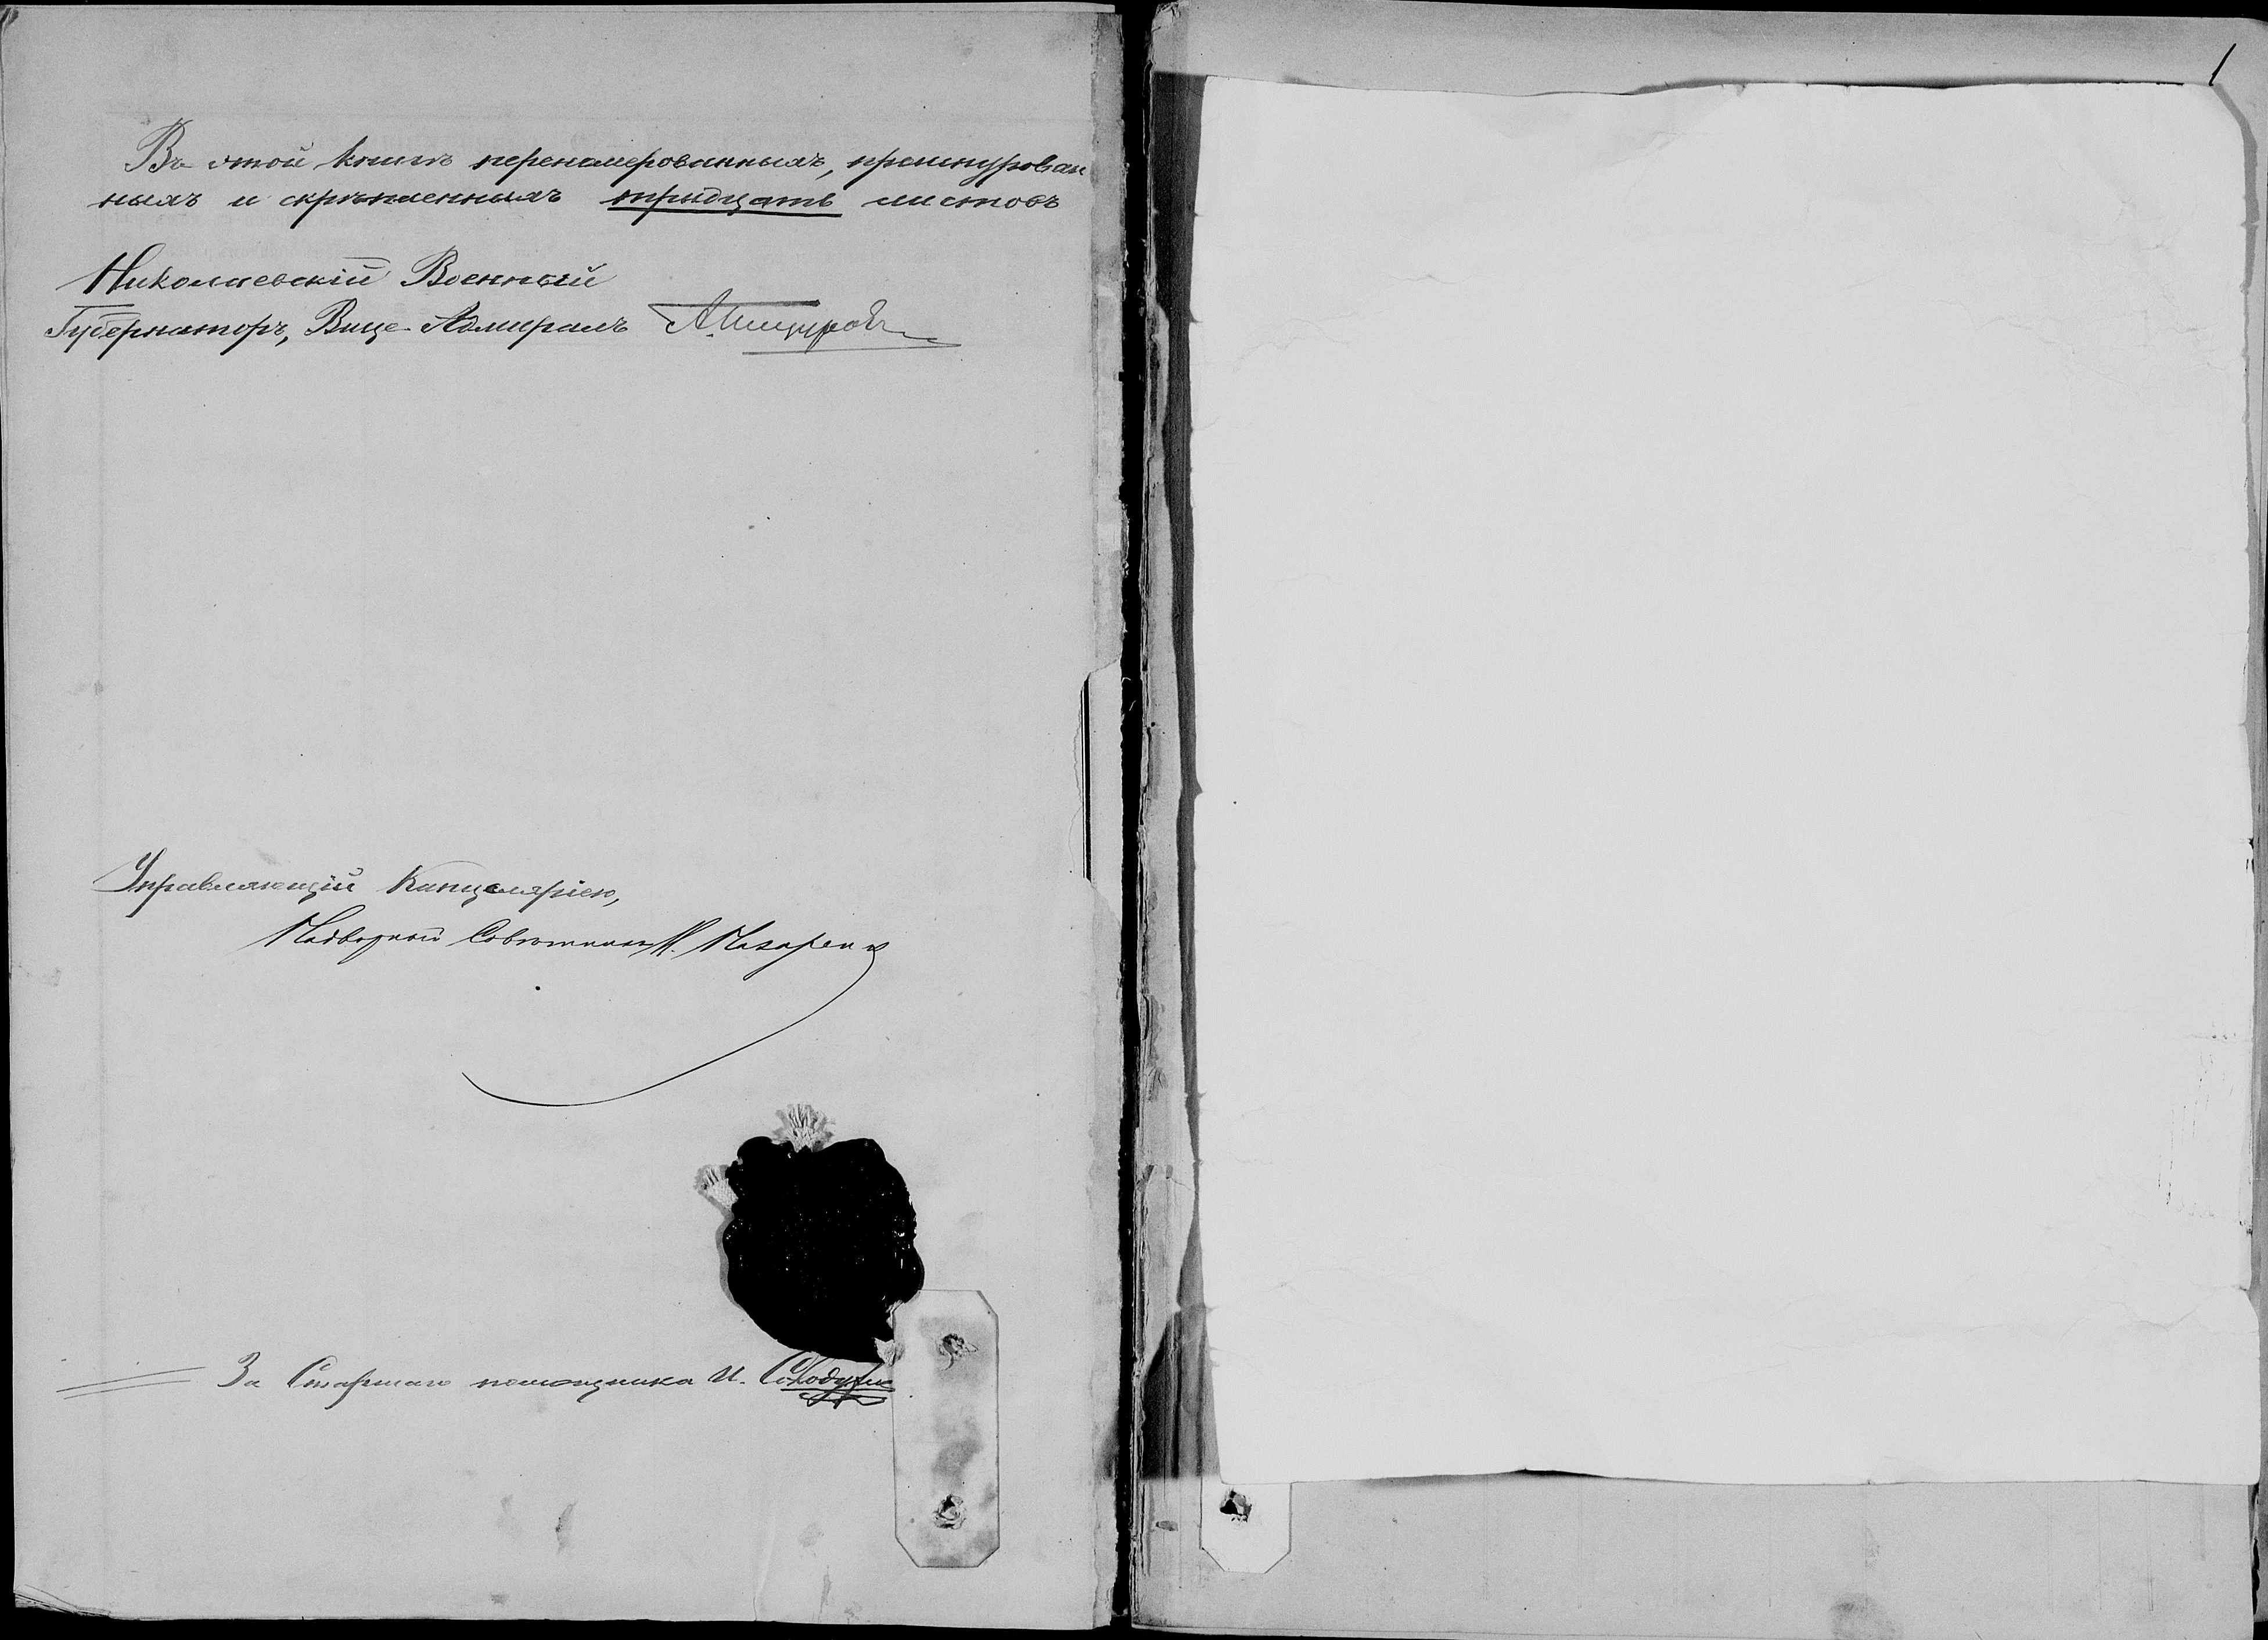 Въ этой книгѣ перенумерованныхъ, прошнурован
ныхъ и скрѣпленныхъ тридцать листовъ
Николаевскій Военный
Губернаторъ, Вице-Адмиралъ А. Пещуровъ
Управляющій Канцеляріею,
Надворный Совѣтникъ Н. Назаренко
За Старшаго помощника И.
1